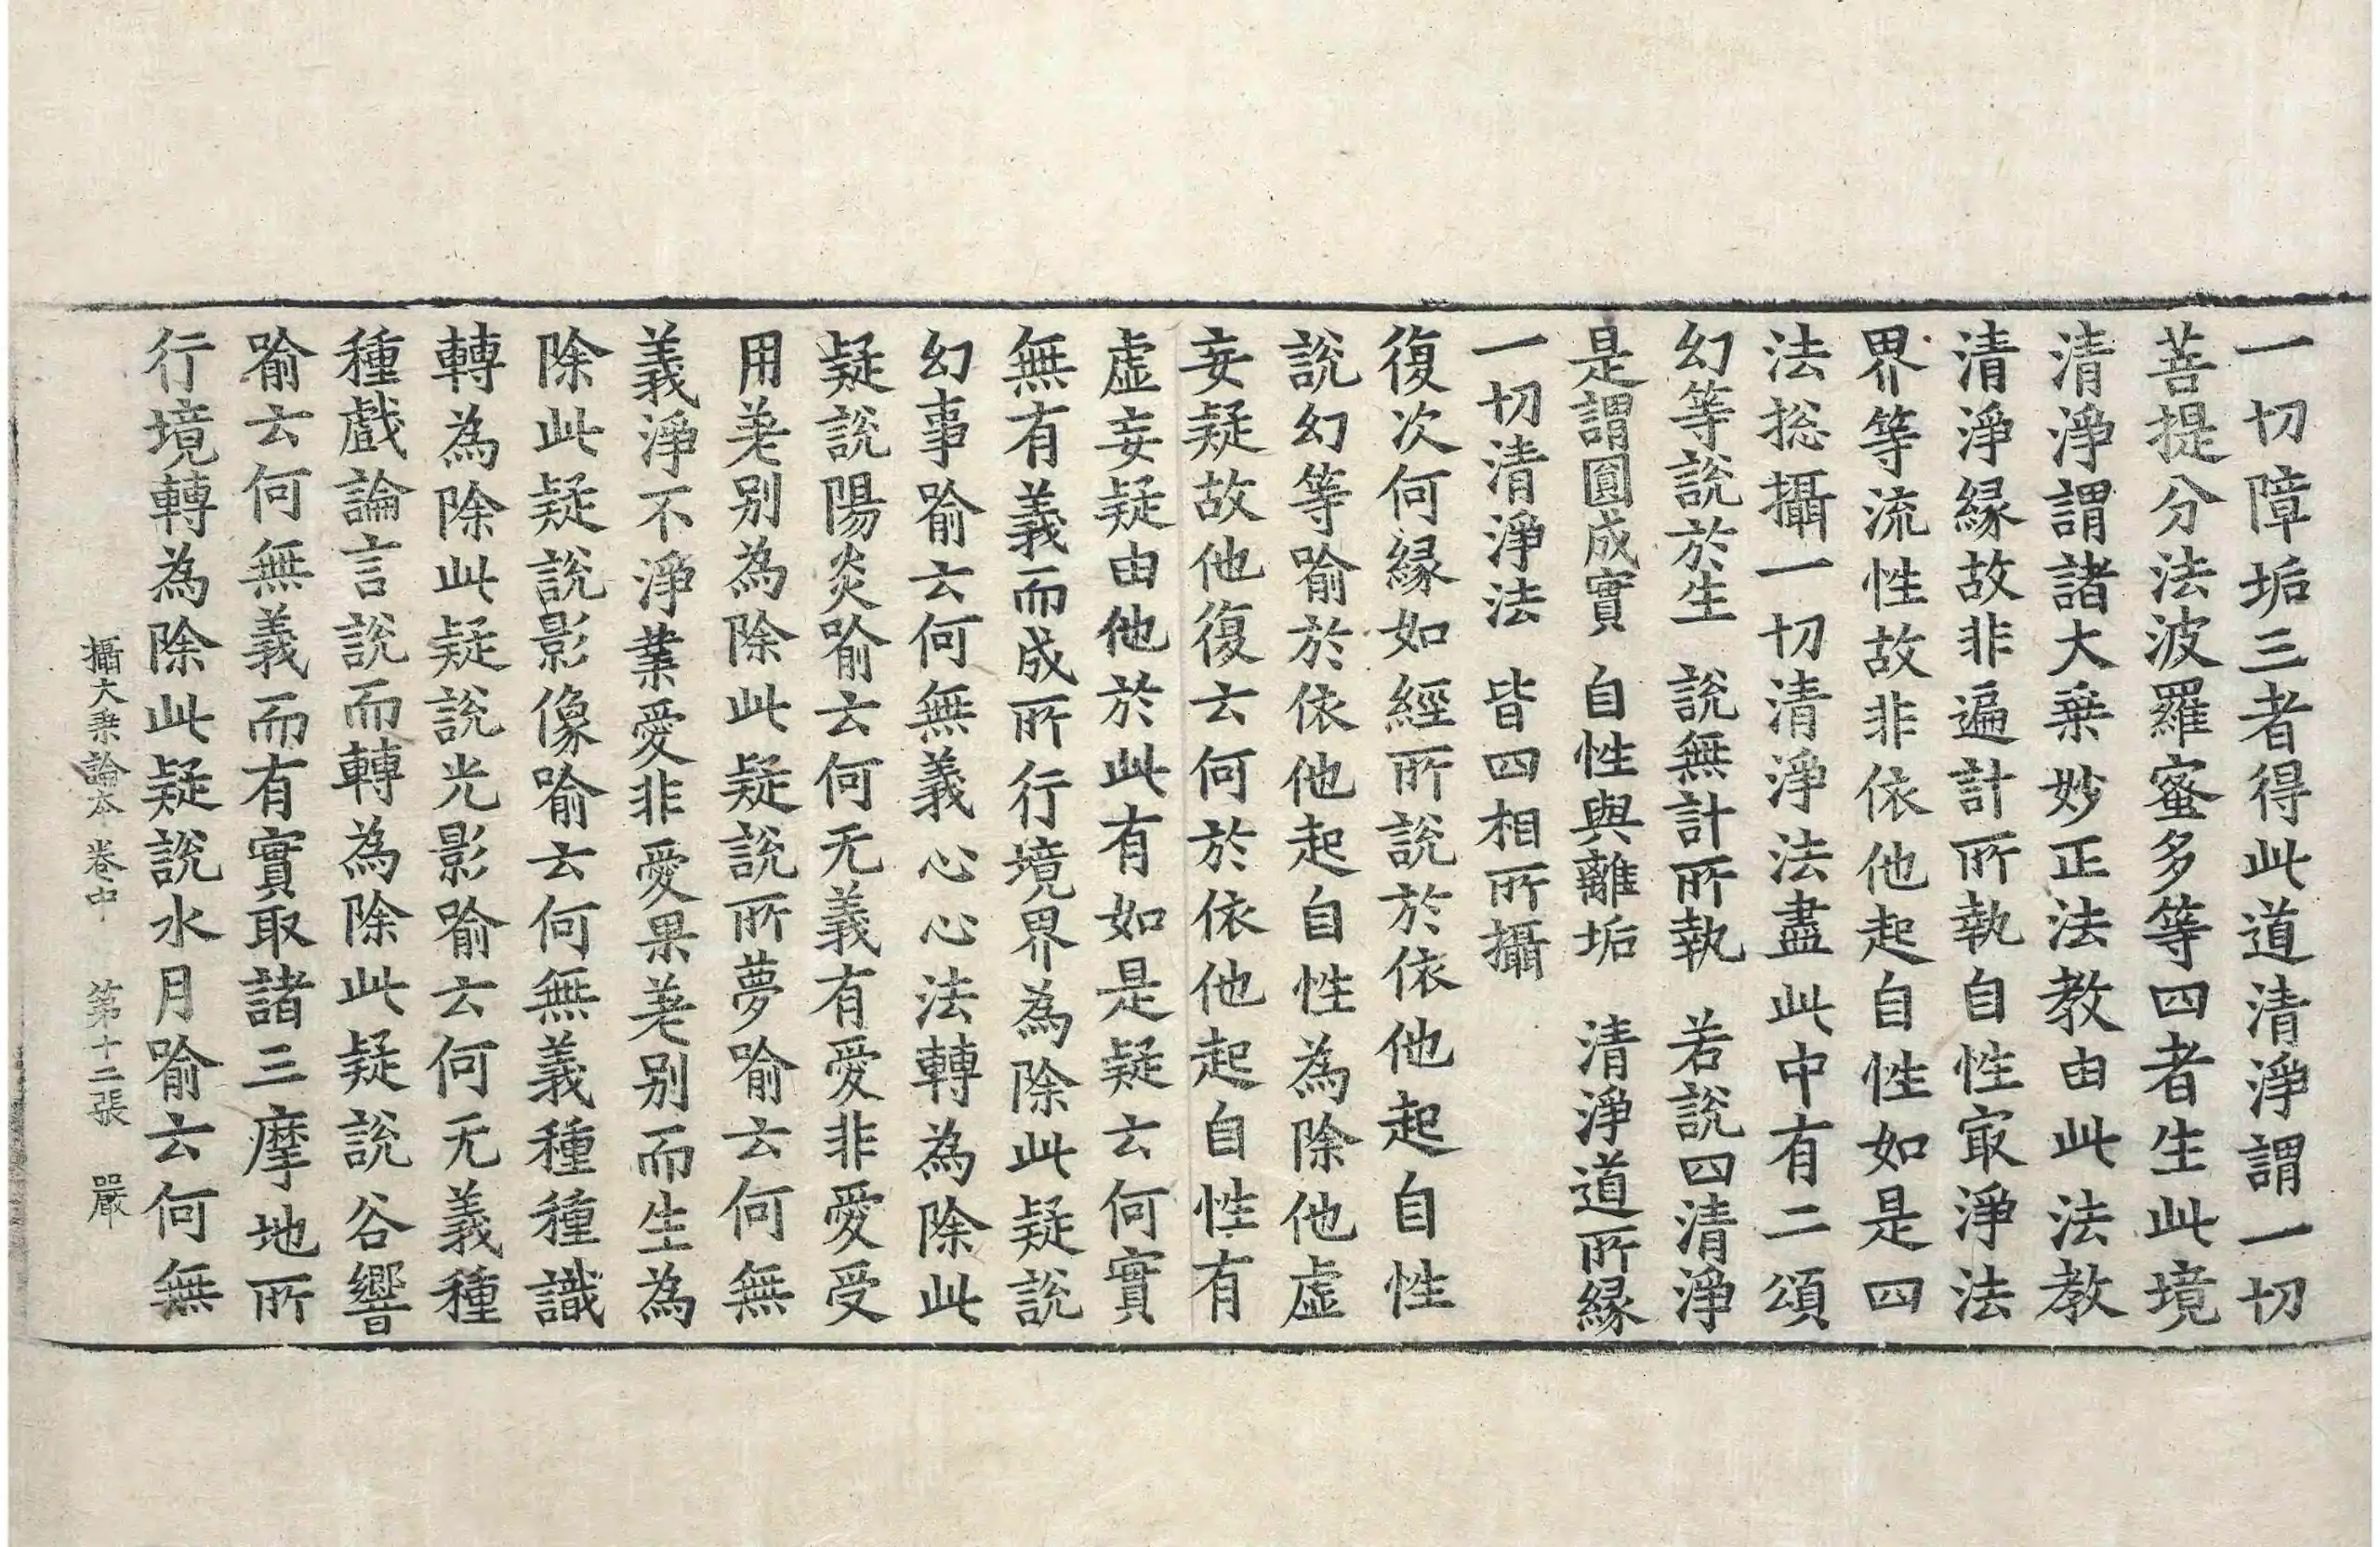 一切障垢三者得此道清淨謂一切
菩提分法波羅蜜多等四者生此境
清淨謂諸大乗妙正法教由此法教
清淨縁故非遍計所執自性㝡淨法
界等流性故非依他起自性如是四
法捴攝一切清淨法盡此中有二頌
幻等說於生　說無計所執　若說四清淨
是謂圓成實　自性與離垢　清淨道所縁
一切清淨法　皆四相所攝
復次何縁如經所說於依他起自性
說幻等喻於依他起自性為除他虛
妄疑故他復云何於依他起自性有
虛妄疑由他於此有如是疑云何實
無有義而成所行境界為除此疑說
幻事喻云何無義心心法轉為除此
疑說陽炎喻云何无義有愛非愛受
用差别為除此疑說所夢喻云何無
義淨不淨業愛非愛果差别而生為
除此疑說影像喻云何無義種種識
轉為除此疑說光影喻云何无義種
種戲論言說而轉為除此疑說谷響
喻云何無義而有實取諸三摩地所
行境轉為除此疑說水月喻云何無
攝大乗論本卷中　第十二張　嚴